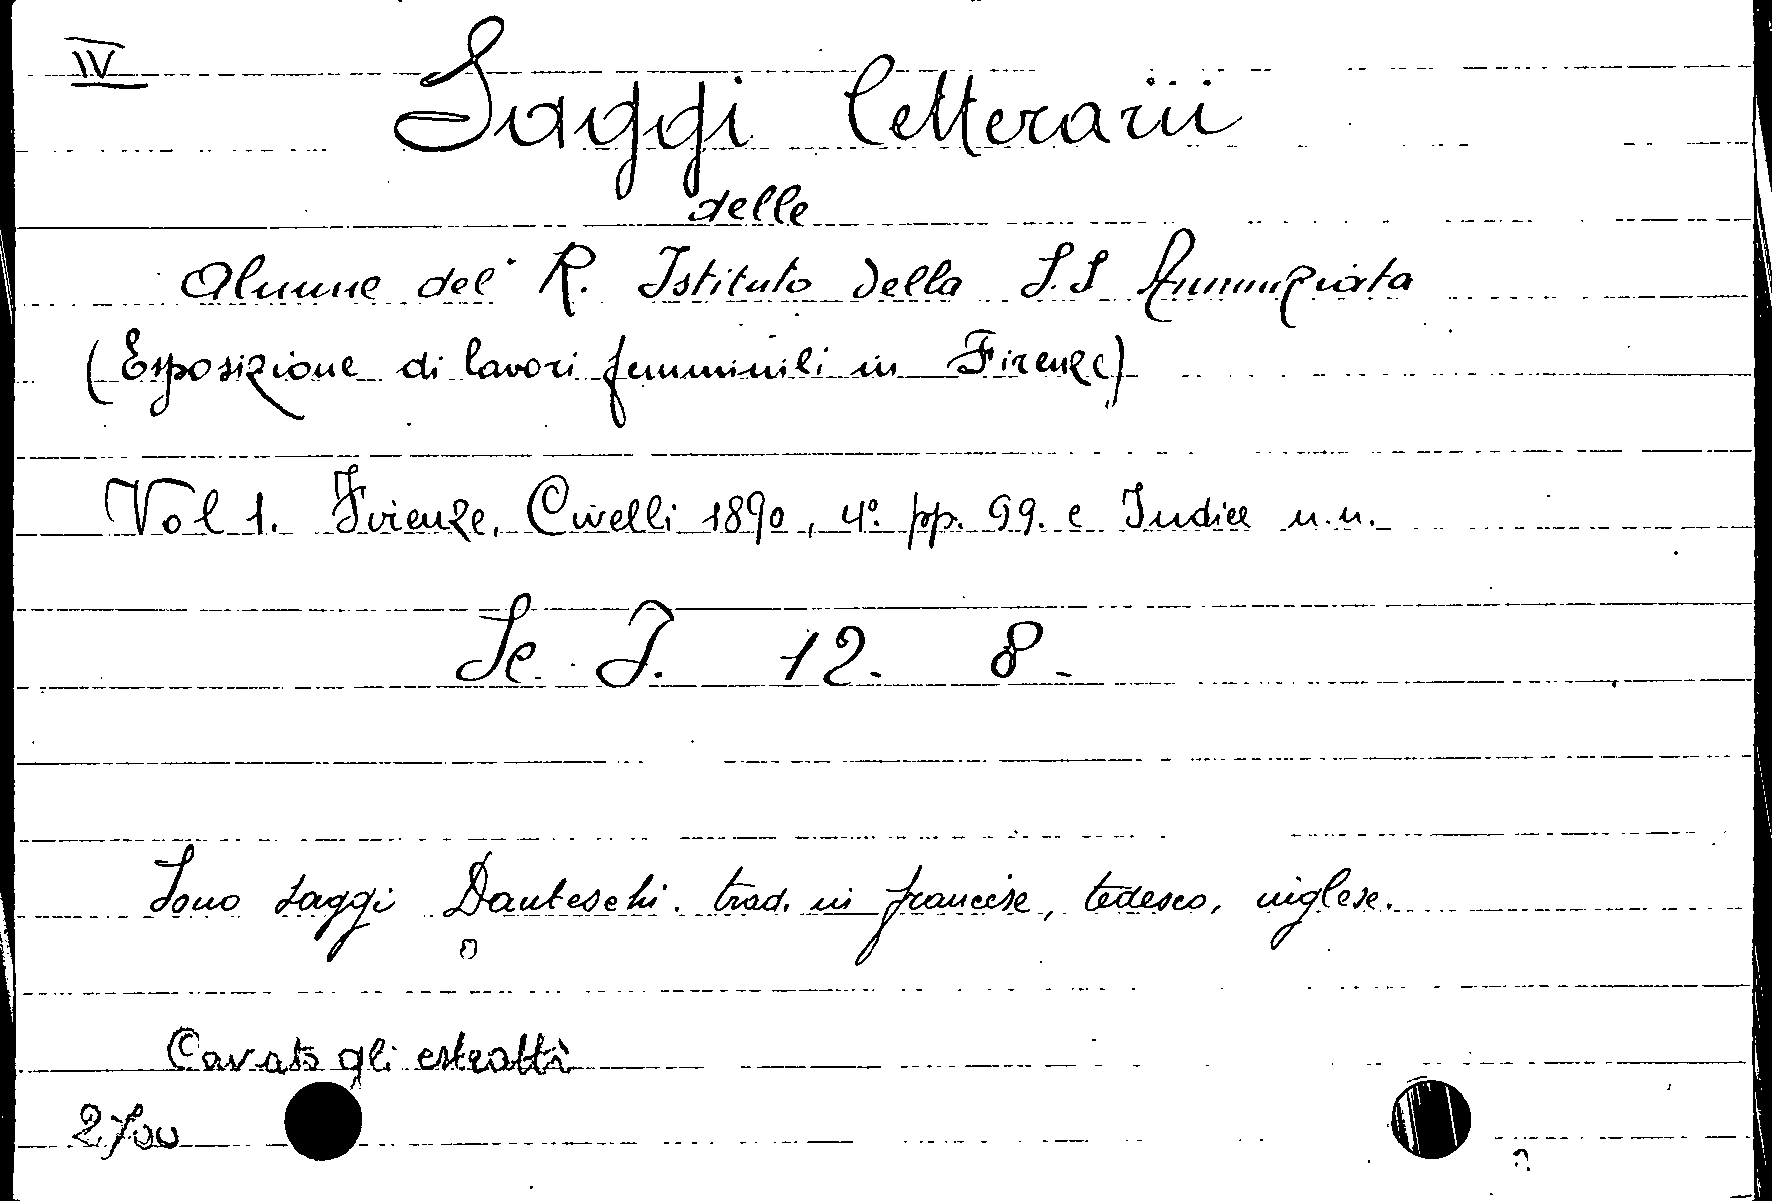 IV
Saggi letterarii
delle
Alunne del R. Istituto della S.S Annunziata
(Esposizione di lavori femminili in Firenze)
Vol 1. Firenze, Civelli 1890, 4°. pp. 99. e Indice n.n.
Sc. J. 12. 8.
Sono saggi Danteschi. trad. in francese, tedesco, inglese.
Cavato gli estratti
2700